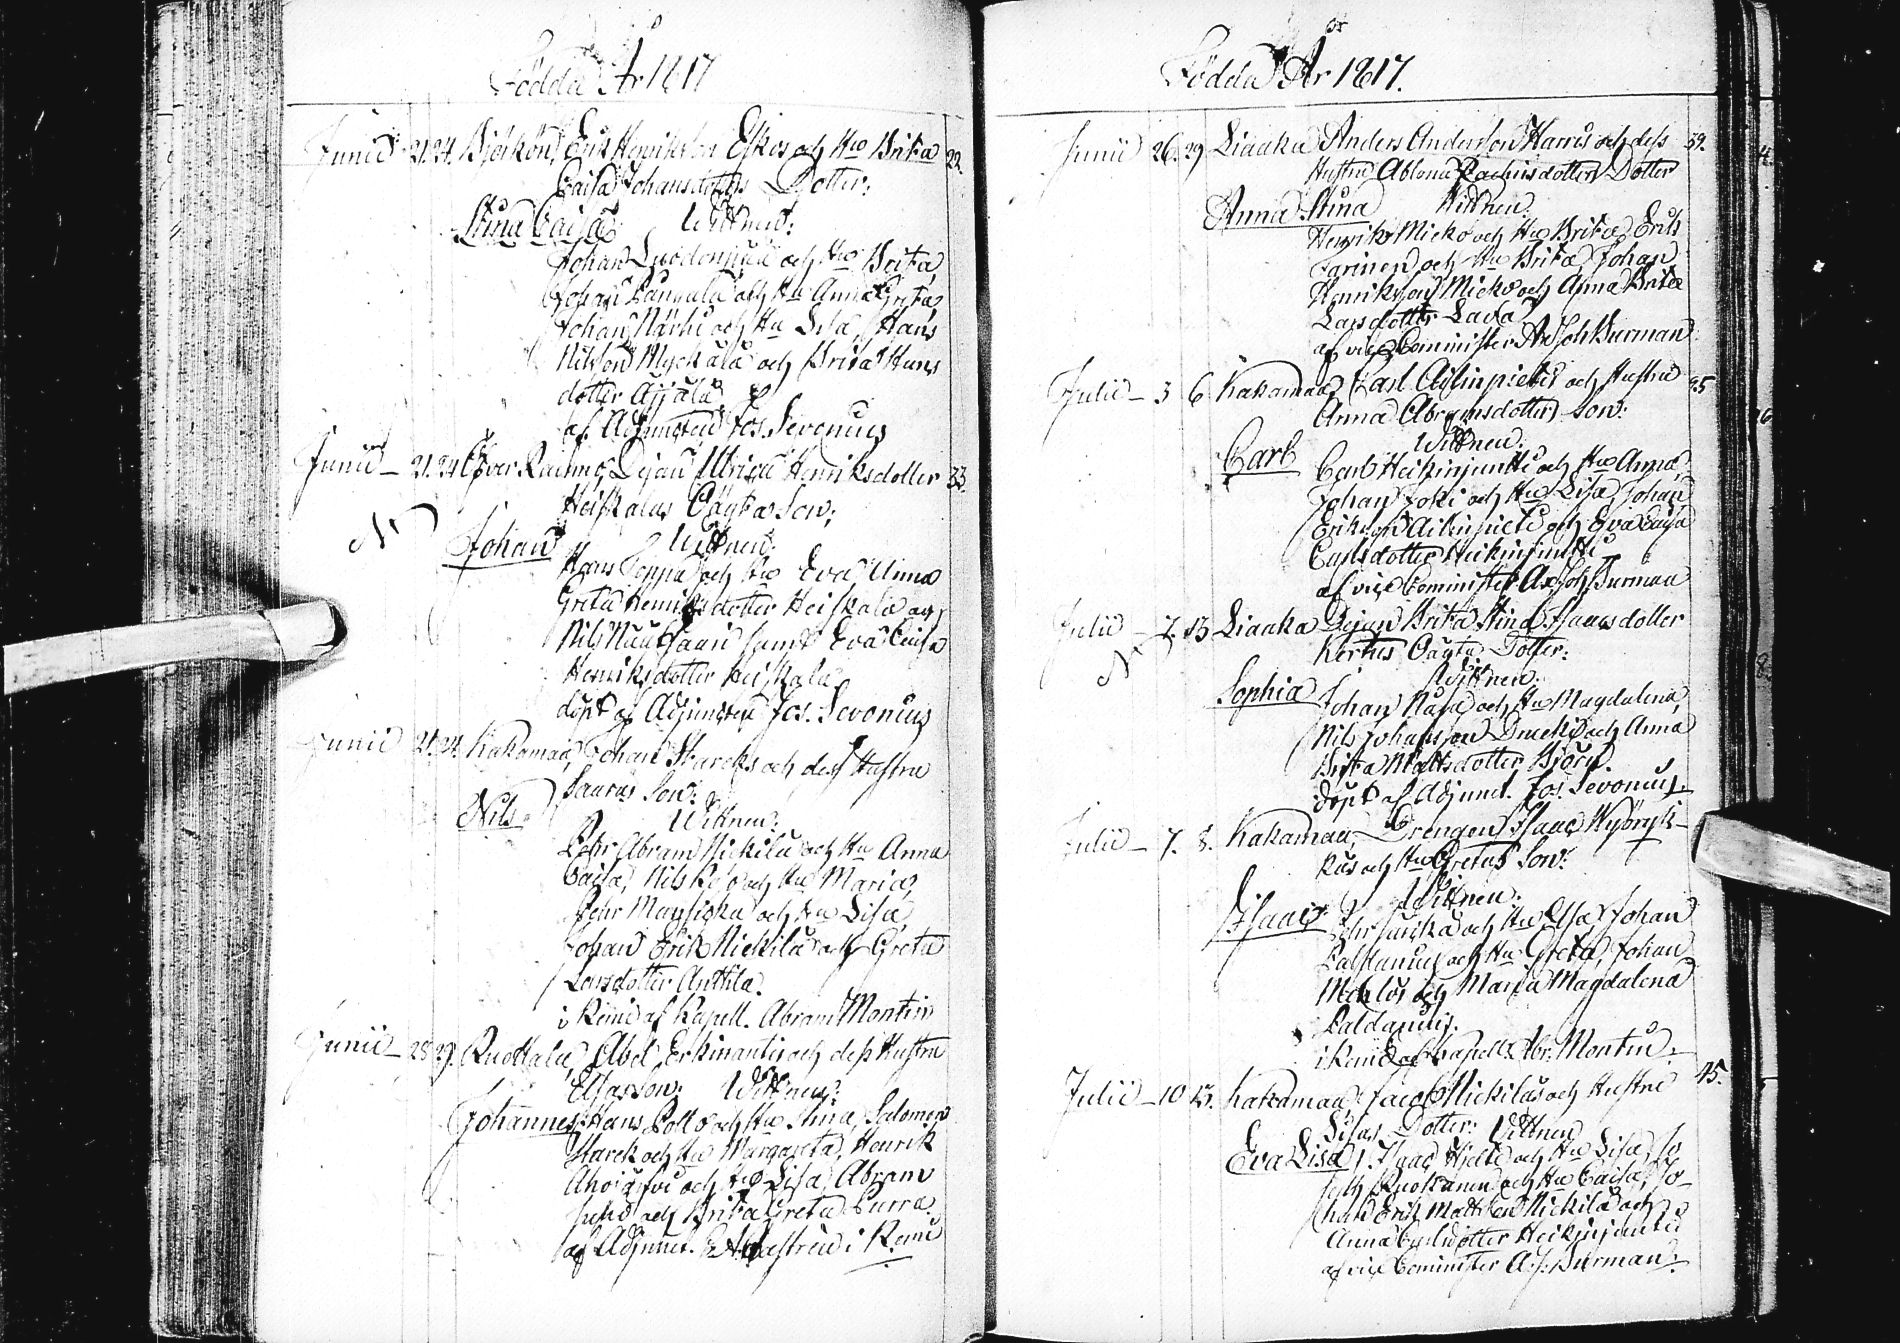 Födda År 1817
Junii 21. 24. Björkön, Erik Henriksson Eskos och Hu Brita 22.
Caisa Johansdotters Dotter:
Stina Caisa Wittnen:
Johan och Hu Brita,
Johan och Hu Anna Greta,
Johan Närhi och Hu Lisa, Hans
Nilsson Myckälä och Brita Hans
dotter Ajjälä
af Adjuncten Jos. Sevonius
Junii – 21. 24 Öfver Raumo, Pejan Ulrica Henriksdotter 33.
Heiskalas Oägta Son:
N
Johan Wittnen:
Hans Toppa och Hu Eva, Anna
Greta Henriksdotter Heiskala och
Nils samt Eva Caisa
Henriksdotter Heiskala
döpt af Adjuncten Jos. Sevonius
Junii 21. 24. Kakamaa, Johan Starcks och dess Hustru
Lauras Son:
Nils Wittnen:
Pehr Abram Nickilä och Hu Anna
Caisa, Nils och Hu Maria,
Pehr och Hu Lisa,
Johan Erik Nickilä och Greta
Larsdotter Anttila.
i Kemi af Kapell. Abram Montin
Junii – 28 29. Ruottala, Abel Erkinantis och dess Hustru
Elsas son: Wittnen:
Johannes: Hans Potto och Hu Stina, Salomon
Starck och Hu Margareta, Henrik
och Hu Lisa, Abram
Junu och Brita Greta Purra.
af Adjunct. Castrén i Kemi
Födda År 1817.
Junii 26. 29 Liaaka Anders Andersson Harris och dess 39.
Hustru Ablona dotters Dotter
Anna Stina Wittnen.
Henrik Micko och Hu Brita, Erik
Farinen och Hu Brita, Johan
Henriksson Micko och Anna Brita
Larsdotter Lava
af vice Cominister And Joh Burman
Julii – 3 6 Kakamaa, Carl Ailinpietis och Hustru 25
Anna Abramsdotters Son:
Wittnen:
Carl Carl Heikinjuntti och Hu Anna,
Johan Joki och Hu Lisa, Johan
Eriksson Ailinpieti och Eva Caisa
Carlsdotter Heikinjuntti
af vice Cominister And Joh Burman
Julii – 7. 13 Liaaka Pejan Brita Stina Isaacsdotter
N Kerttus Oägta Dotter:
Wittnen:
Sophia Johan Nasa och Hu Magdalena,
Nils Johansson och Anna
Brita Mattsdotter Björn.
döpt af Adjunct. Jos. Sevonius.
Julii – 7. 8. Kakamaa, Drengen Isaac Wyöryk-
käs och Hu Gretas Son:
Wittnen:
Isaac Pehr och Hu Elsa, Johan
Paldanius och Hu Greta, Johan
och Maria Magdalena
Paldanius.
i Kemi af Kapell. Abr. Montin.
Julii – 10 13. Kakamaa, Jacob Nickiläs och Hustru 45.
Lisas Dotter: Wittnen
Eva Lisa Isaac Hjelte och Hu Lisa, Jo
seph Ruokanen och Hu Caisa, Jo-
han Erik Mattsson Nickilä och
Anna Carlsdotter Heikinjuntti
af vice Cominister A. J. Burman.